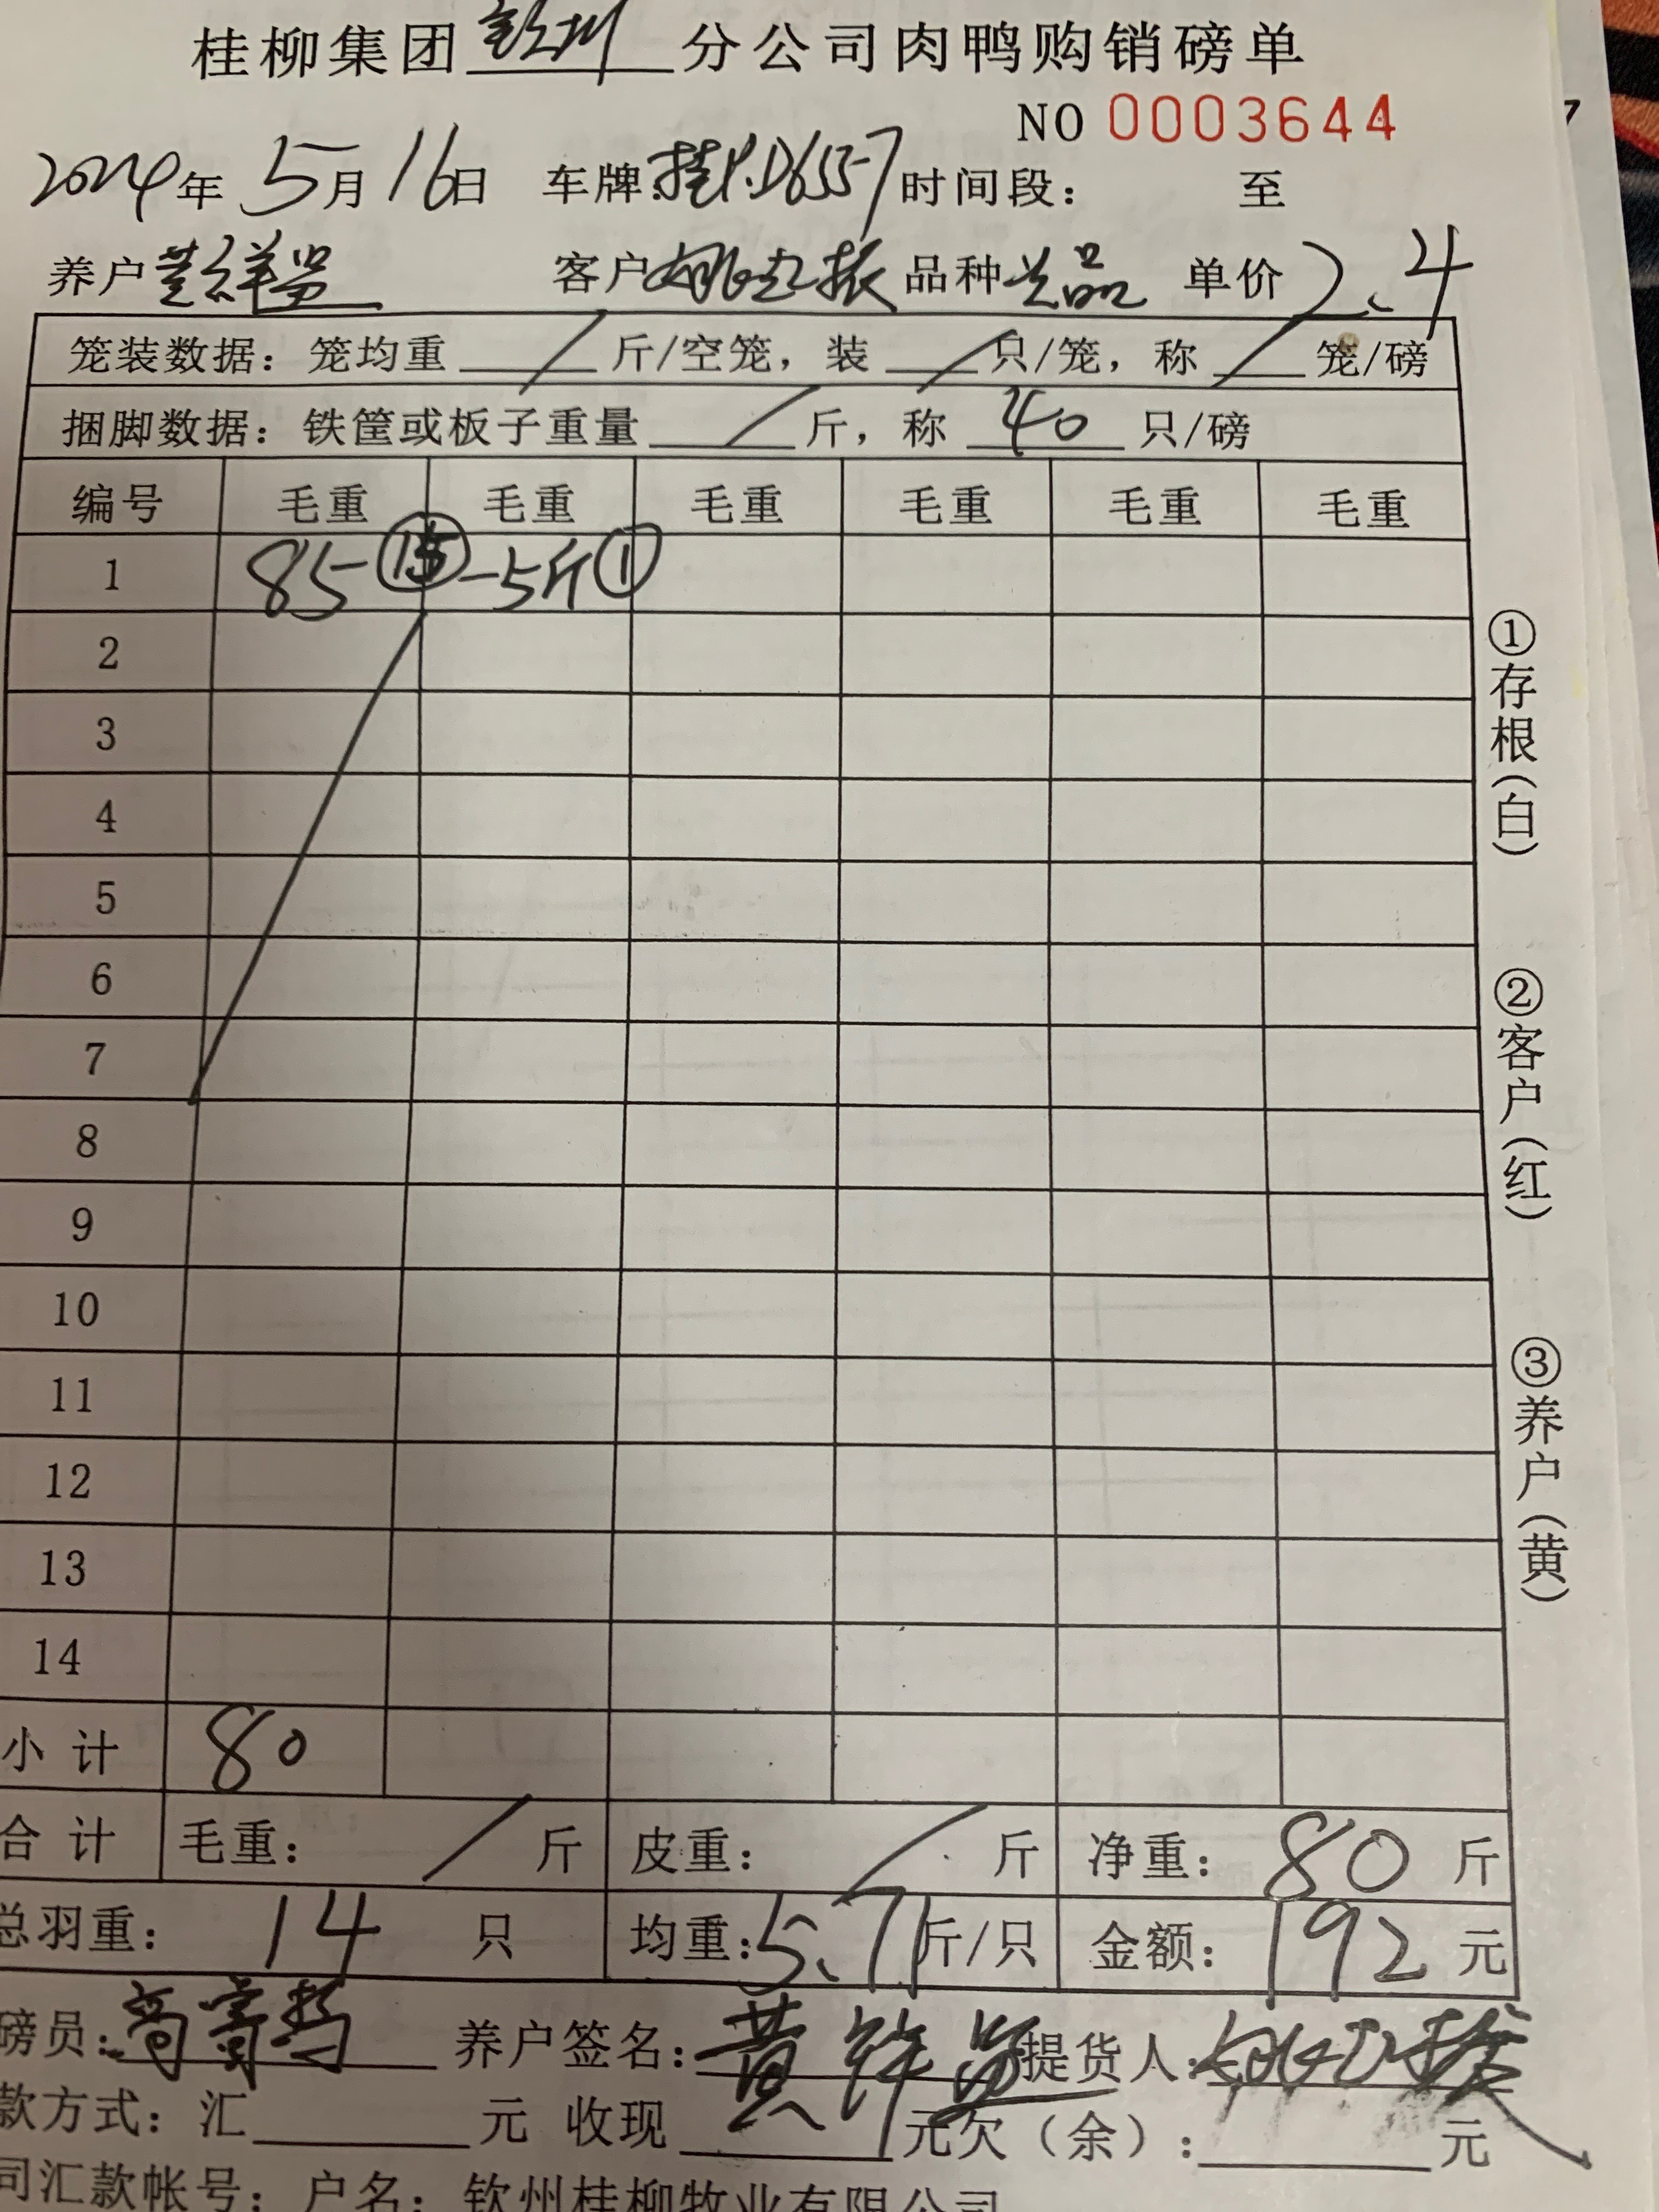 桂柳集团钦州分公司肉鸭购销磅单
NO 0003644
2024年 5月 16日 车牌:桂P.D6557 时间段: 至
养户 黄祥 客户 姚 振 品种 次品 单价 2.4
笼装数据:笼均重 / 斤/空笼,装 / 只/笼,称 / 笼/磅
捆脚数据:铁筐或板子重量 / 斤,称 40 只/磅
编号 毛重 毛重 毛重 毛重 毛重 毛重
1 85-⑮-5斤①
2
3
4
5
6
7
8
9
10
11
12
13
14
小计 80
合计 毛重: / 斤 皮重: / 斤 净重: 80 斤
总羽重: 14 只 均重:5.71斤/只 金额: 192 元
磅员: 养户签名:黄祥 提货人:
款方式:汇 元 收现 元欠(余): 元
司汇款帐号:户名:钦州桂柳牧业有限公司
①存根(白)
②客户(红)
③养户(黄)